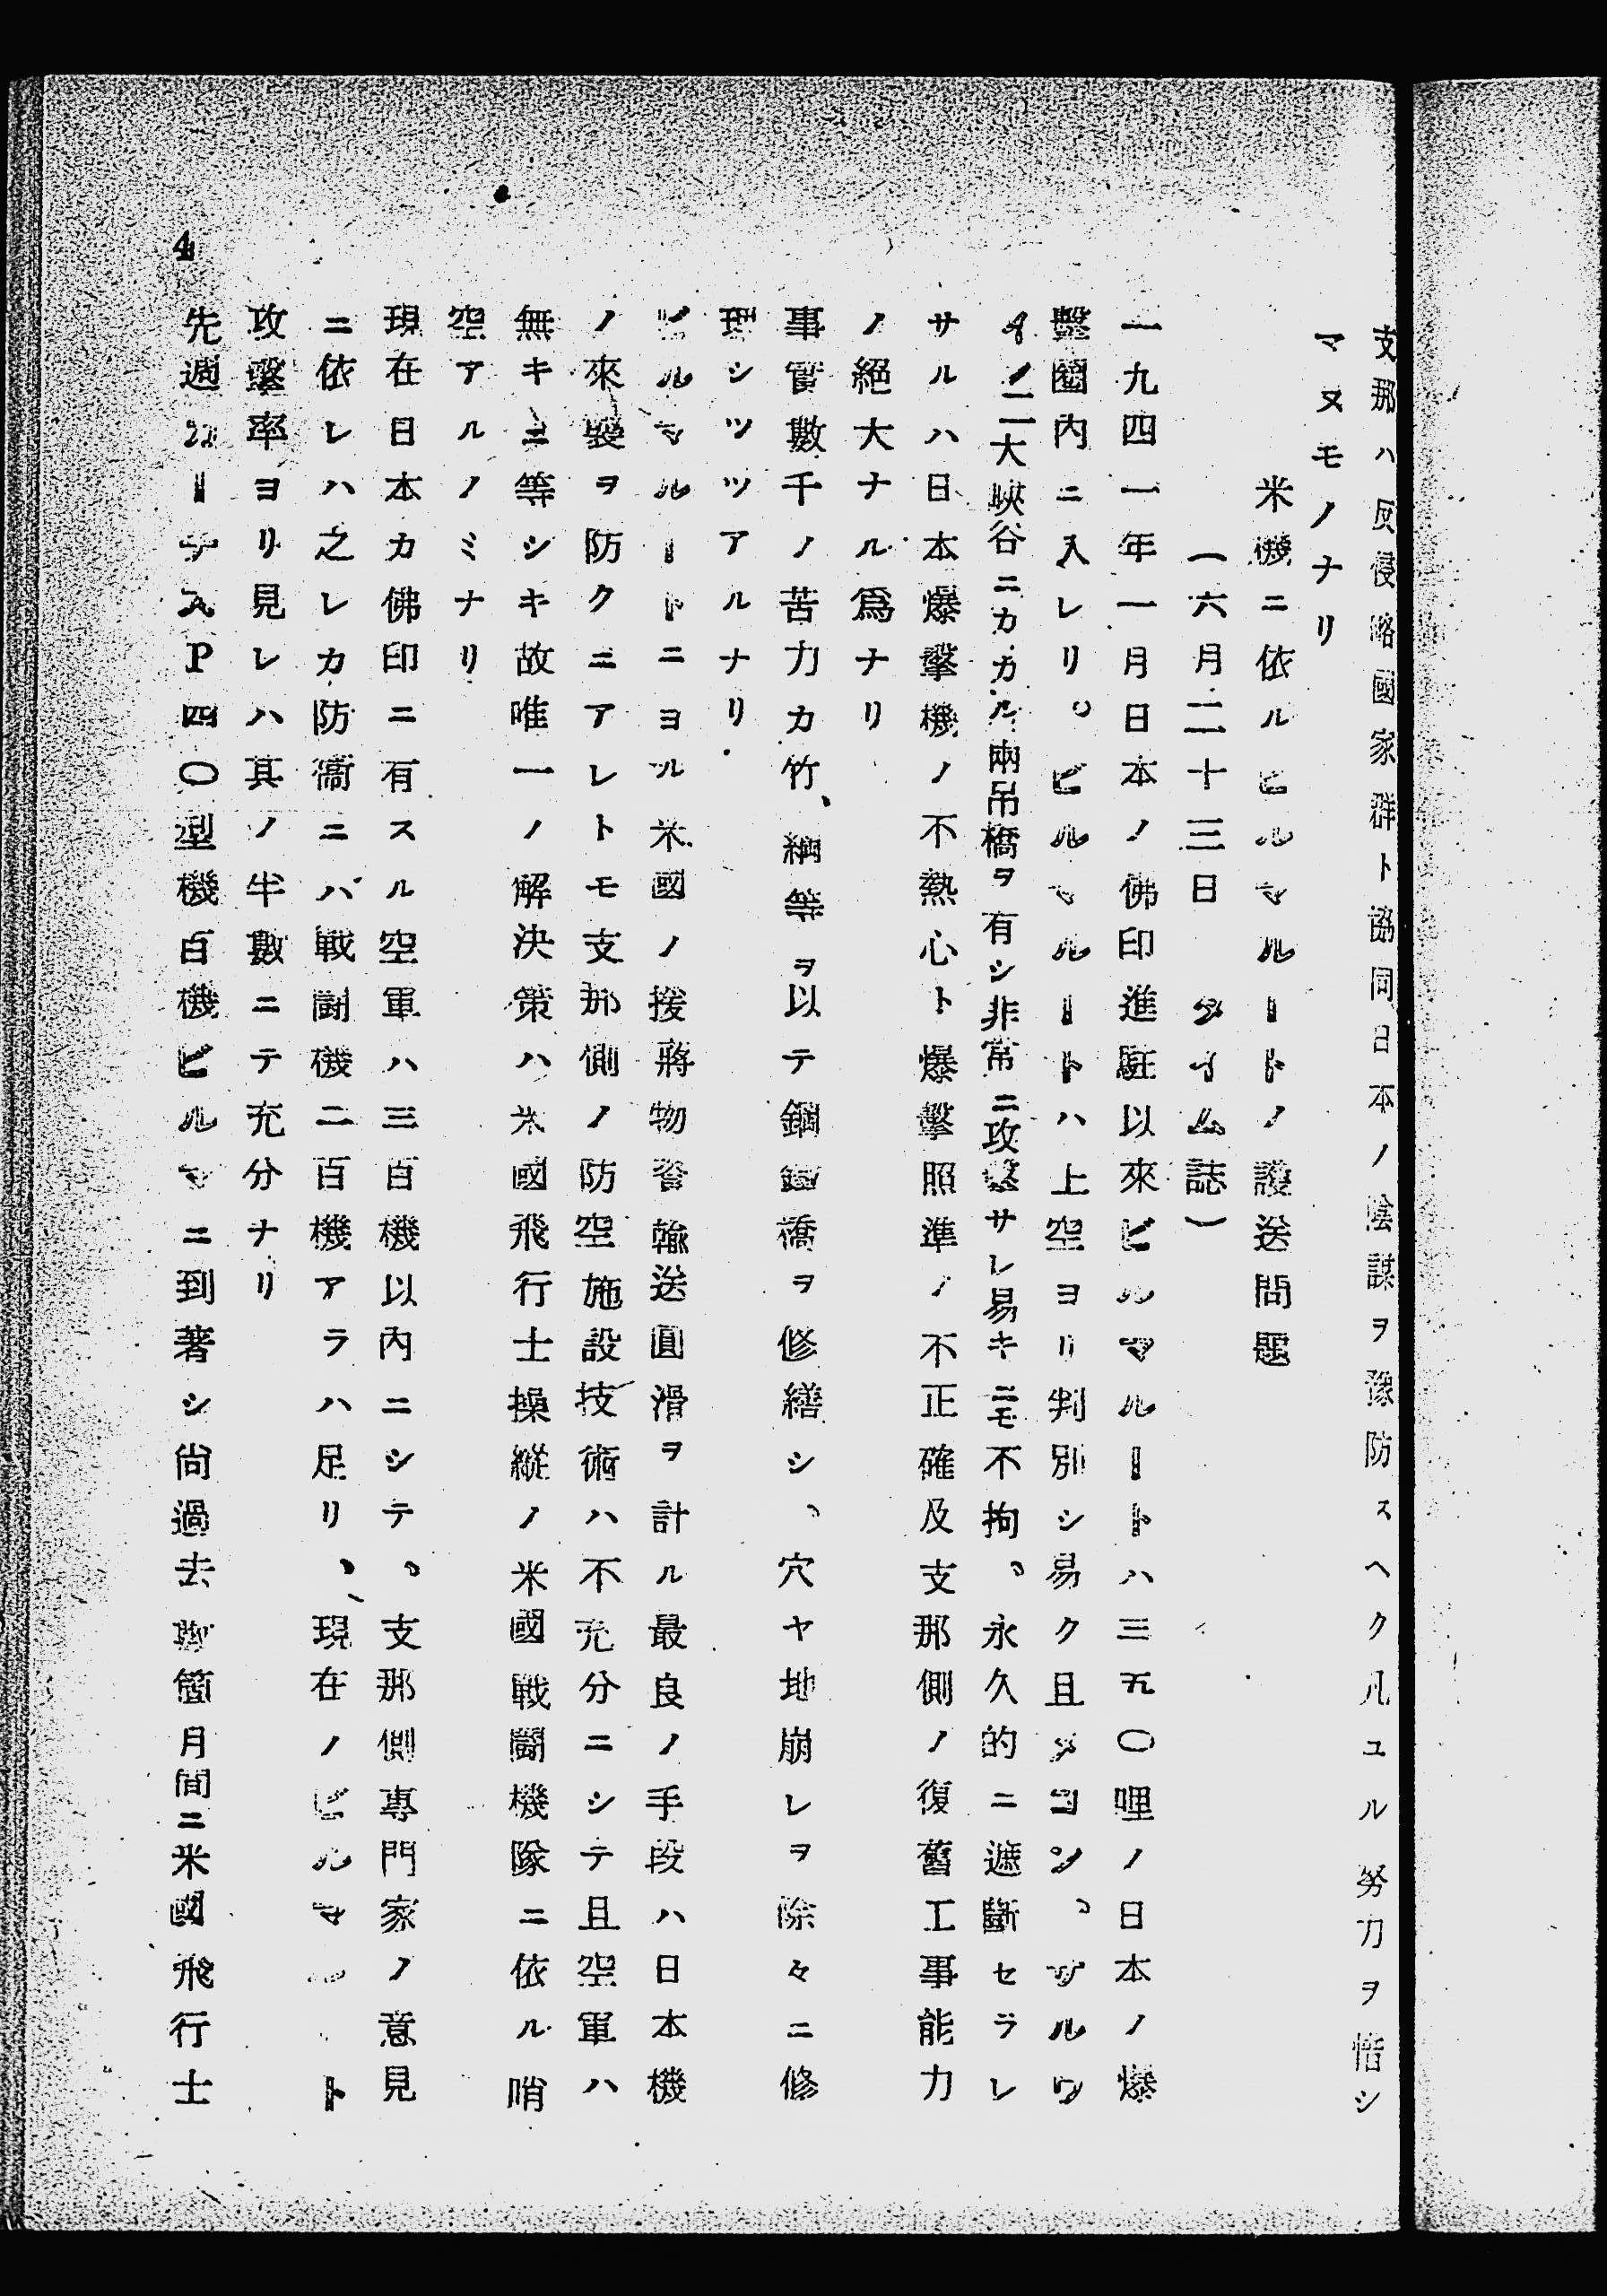 支那ハ反侵略國家群ト協同日本ノ陰謀ヲ豫防スヘク凡ユル努力ヲ惜シ
マヌモノナリ
米機ニ依ルビルマルートノ護送問題
一六月二十三日 タイム誌)
一九四一年一月日本ノ佛印進駐以來ビルマルートハ三五〇哩ノ日本ノ爆
擊圈内ニ入レリ。ビルマルートハ上空ヨリ判別シ易ク且メコン、サルウ
イノ二大峽谷ニカカル兩吊橋ヲ有シ非常ニ攻擊サレ易キニモ不拘、永久的ニ遮斷セラレ
サルハ日本爆擊機ノ不熱心ト爆擊照準ノ不正確及支那側ノ復舊工事能力
ノ絕大ナル爲ナリ
事實數千ノ苦力カ竹、綱等ヲ以テ鋼鐵橋ヲ修繕シ、穴ヤ地崩レヲ除々ニ修
理シツツアルナリ.
ビルマルートニヨル米國ノ援蔣物資輸送圓滑ヲ計ル最良ノ手段ハ日本機
ノ來襲ヲ防クニアレトモ支那側ノ防空施設技術ハ不充分ニシテ且空軍ハ
無キニ等シキ故唯一ノ解決策ハ米國飛行士操縱ノ米國戰鬪機隊ニ依ル哨
空アルノミナリ
現在日本カ佛印ニ有スル空軍ハ三百機以內ニシテ、支那側專門家ノ意見
ニ依レハ之レカ防衞ニハ戰鬪機二百機アラハ足リ、現在ノビルマルート
攻擊率ヨリ見レハ其ノ半數ニテ充分ナリ
先週カーチスP四〇型機百機ビルマニ到著シ尙過去數箇月間ニ米國飛行士
4